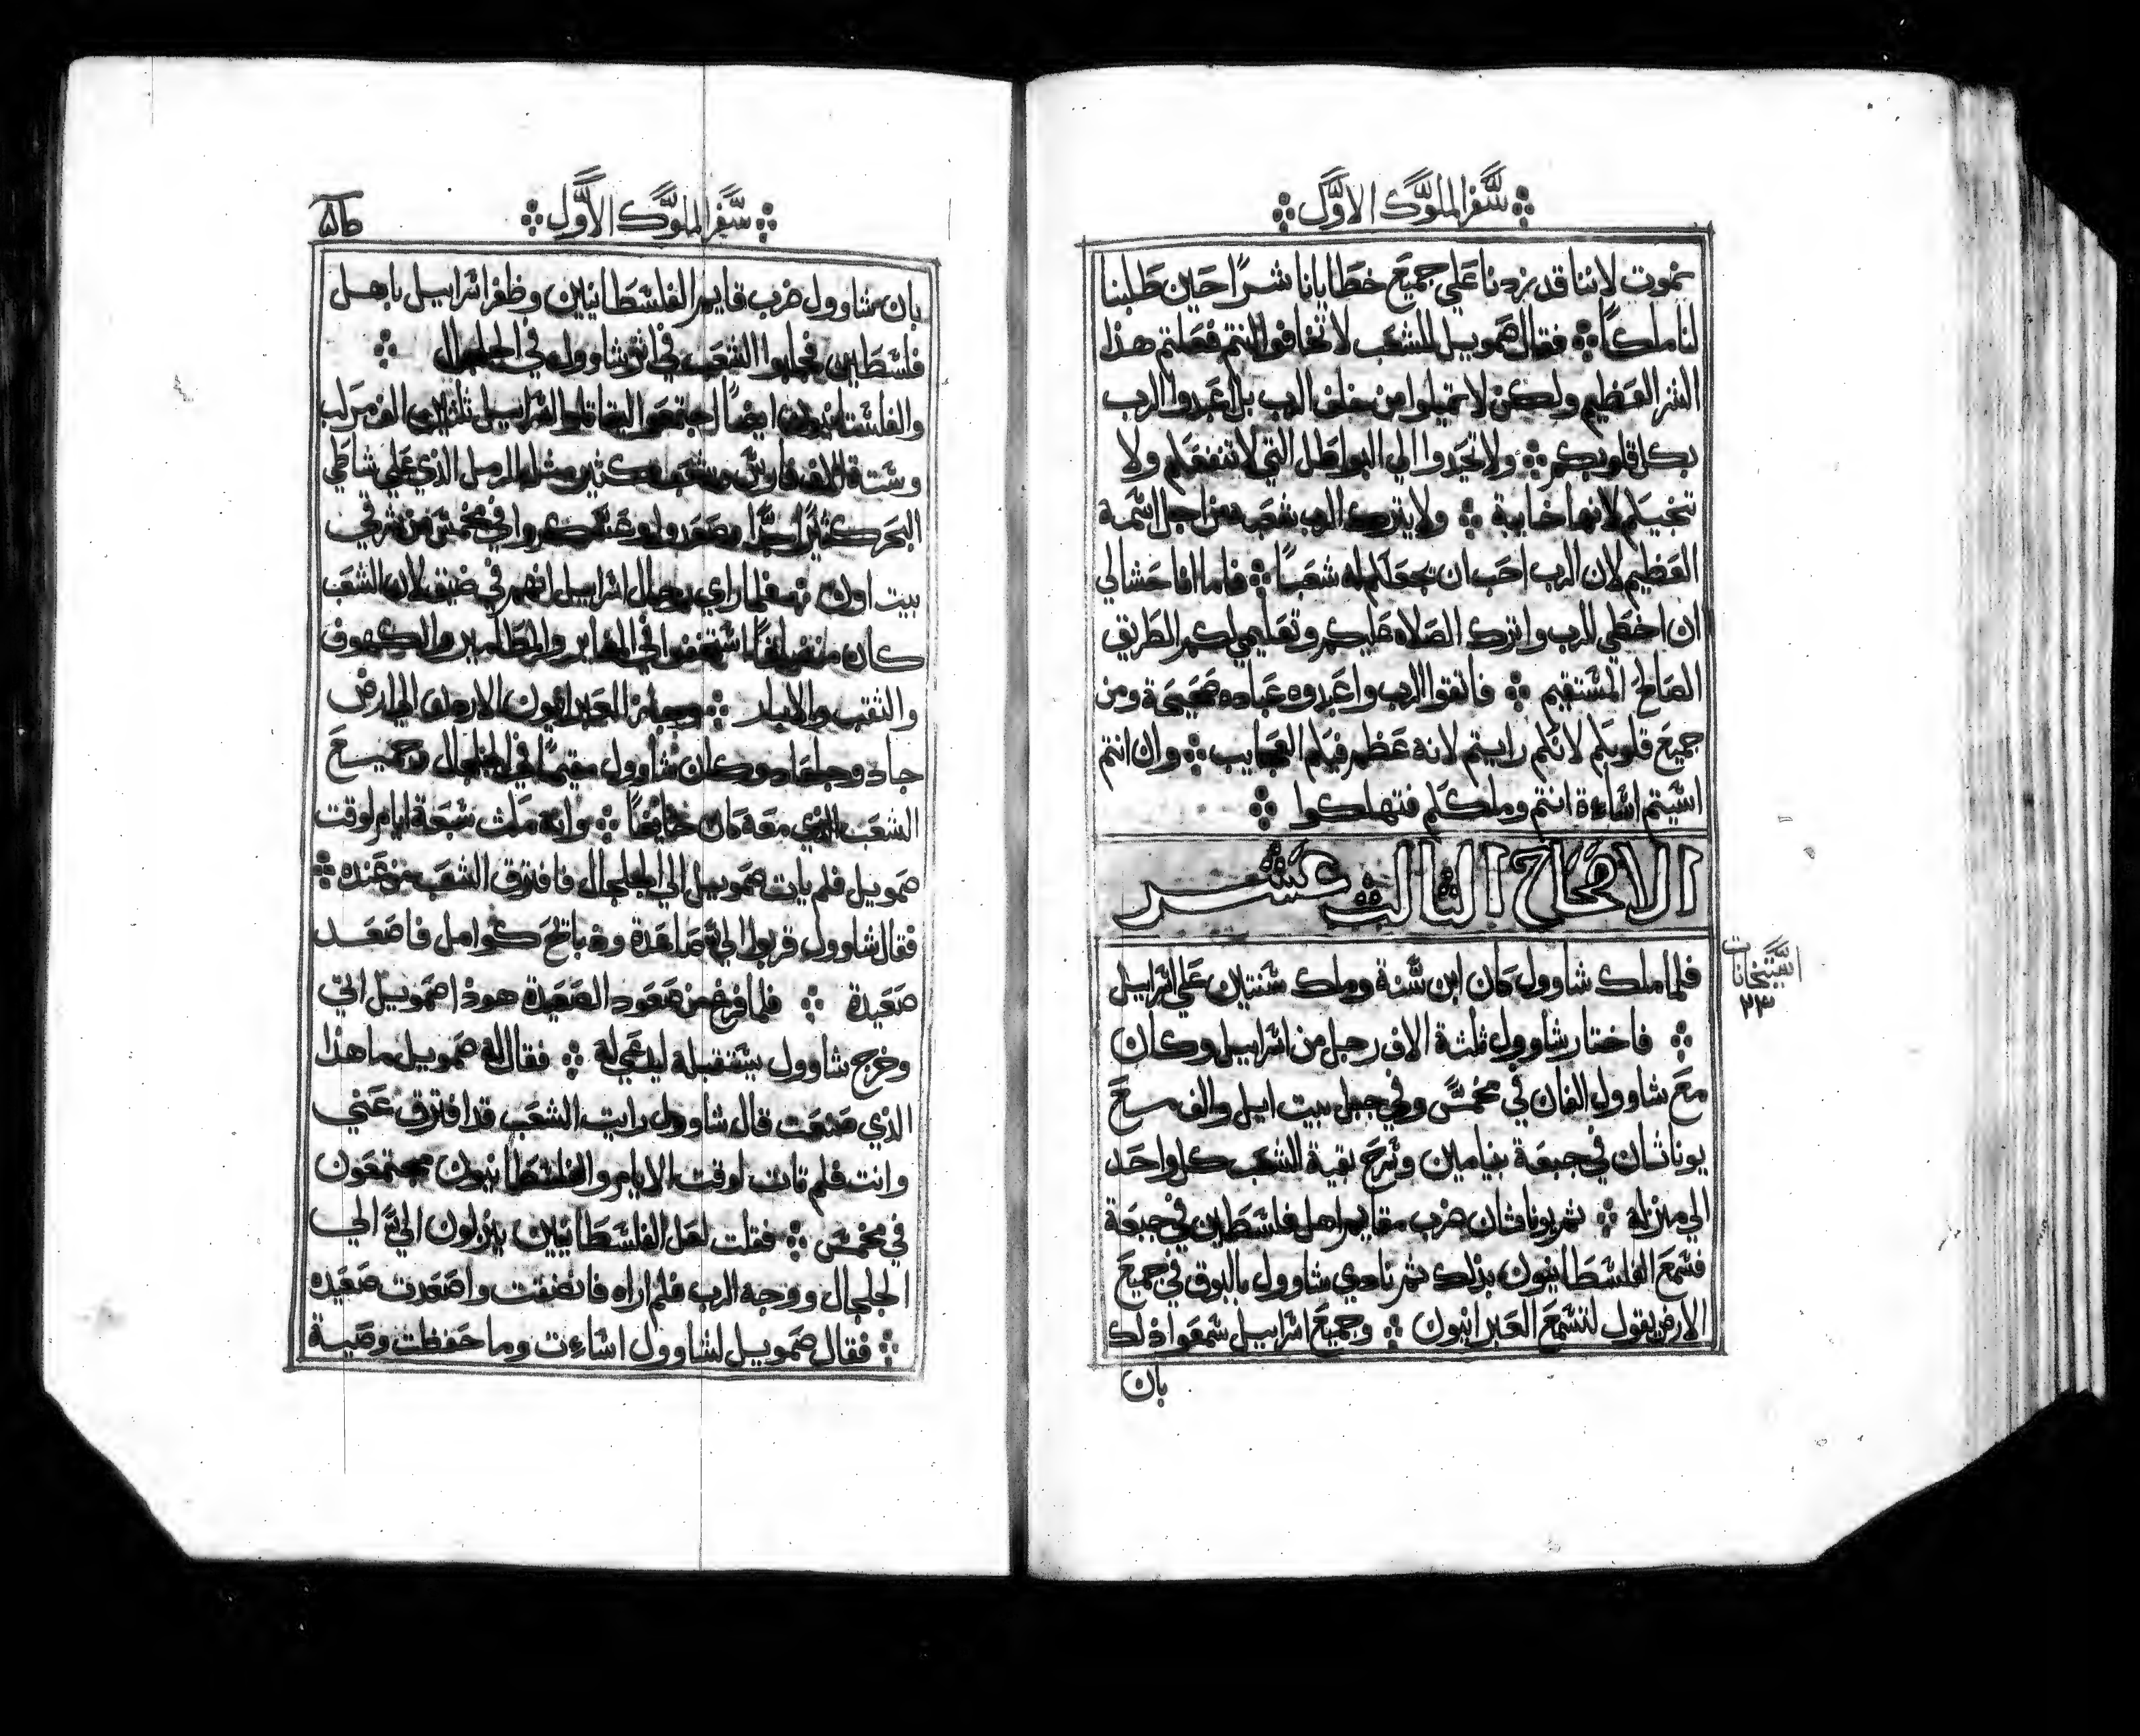 سفر الملوك الاول
نموت لاننا قد زدنا علي جميع خطايانا شرًا حين طلبنا
لنا ملكًا فقال صمويل للشعب لا تخافوا انتم فعلتم هذا
الشر العظيم ولكن لا تميلوا من خلف الرب بل اعبدوا الرب
بكل قلوبكم ولا تحيدوا الي البواطل التي لا تنفعكم ولا
تنجيكم لانها خايبة ولا يترك الرب شعبه من اجل اسمه
العظيم لان الرب احب ان يجعلكم له شعبًا فاما انا حشا لي
ان اخطي للرب واترك الصلاه عليكم وتعليمي لكم الطريق
الصالح المستقيم فاتقوا الرب واعبدوه عباده صحيحة ومن
جميع قلوبكم لانكم رايتم لانه عظم فيكم العجايب وان انتم
اسيتم اساءة انتم وملككم فتهلكوا
الاصحاح الثالث عشر
فلما ملك شاوول كان ابن سنة وملك سنتين علي اسراييل
فاختار شاوول ثلثة الاف رجل من اسراييل وكان
مع شاوول الفان في مخمس وفي جبل بيت ايل والف مع
يوناثان في جبعة بنيامين وسرح بقية الشعب كل واحد
الي منزله ثم يوناثان ضرب مقايم اهل فلسطين في جبعة
فسمع الفلسطانيون بذلك ثم نادي شاوول بالبوق في جميع
الارض يقول لتسمع العبرانيون وجميع اسراييل سمعوا ذلك
بان
استيخانات
٢٣
سفر الملوك الاول
بان شاوول ضرب قايم الفلسطانيين وظفر اسراييل باهل
فلسطين فجلبوا الشعب في اثر شاوول في الجلجال
والفلسطانيون ايضًا اجتمعوا ليقاتلوا اسراييل ثلثين الف مركب
وستة الاف فارس وشعب كثير مثل الرمل الذي علي شاطي
البحر كثيرًا جدًا وصعدوا وعسكروا في مخمس من شرقي
بيت اون فلما راي رجال اسراييل انهم في ضيق لان الشعب
كان استخفوا في المغاير والمطامير والكهوف
والنقب والابيار وجاز العبرانيون الاردن الي ارض
جاد وجلعاد وكان شاوول مقيمًا في الجلجال وجميع
الشعب الذي معه كان خايفًا وانه مكث سبعة ايام لوقت
صمويل فلم يات صمويل الي الجلجال فافترق الشعب من عنده
فقال شاوول قربوا الي صاعدة وذبايح كوامل فاصعد
صعيدة فلما فرغ من صعود الصعيدة هوذا صمويل اتي
وخرج شاوول يستقبله ليدعي له فقال له صمويل ما هذا
الذي صنعت قال شاوول رايت الشعب قد افترق عني
وانت فلم تات لوقت الايام والفلسطانيون مجتمعون
في مخمس فقلت لعل الفلسطانيين ينزلون الي الي
الجلجال ووجه الرب فلم اراه فانضقت واصعدت صعيده
فقال صمويل لشاوول اساءت وما حفظت وصية